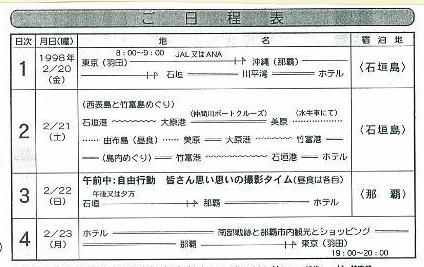 ご日程表
日次 月日(曜) 地 名 宿泊地
1 1998年 2/20 (金) 〈石垣島〉
8:00~9:00 JAL又はANA
東京(羽田) 沖縄(那覇)
石垣 川平湾 ホテル
2 2/21 (土) 〈石垣島〉
(西表島と竹富島めぐり)
(仲間川ボートクルーズ) (水牛車にて)
石垣港 大原港 美原
由布島(昼食) 美原 大原港 竹富港
(島内めぐり) 竹富港 石垣港 ホテル
3 2/22 (日) 〈那覇〉
午前中:自由行動 皆さん思い思いの撮影タイム(昼食は各自)
午後又は夕方
石垣 那覇 ホテル
4 2/23 (月)
ホテル 南部戦跡と那覇市内観光とショッピング
那覇 東京(羽田)
19:00~20:00